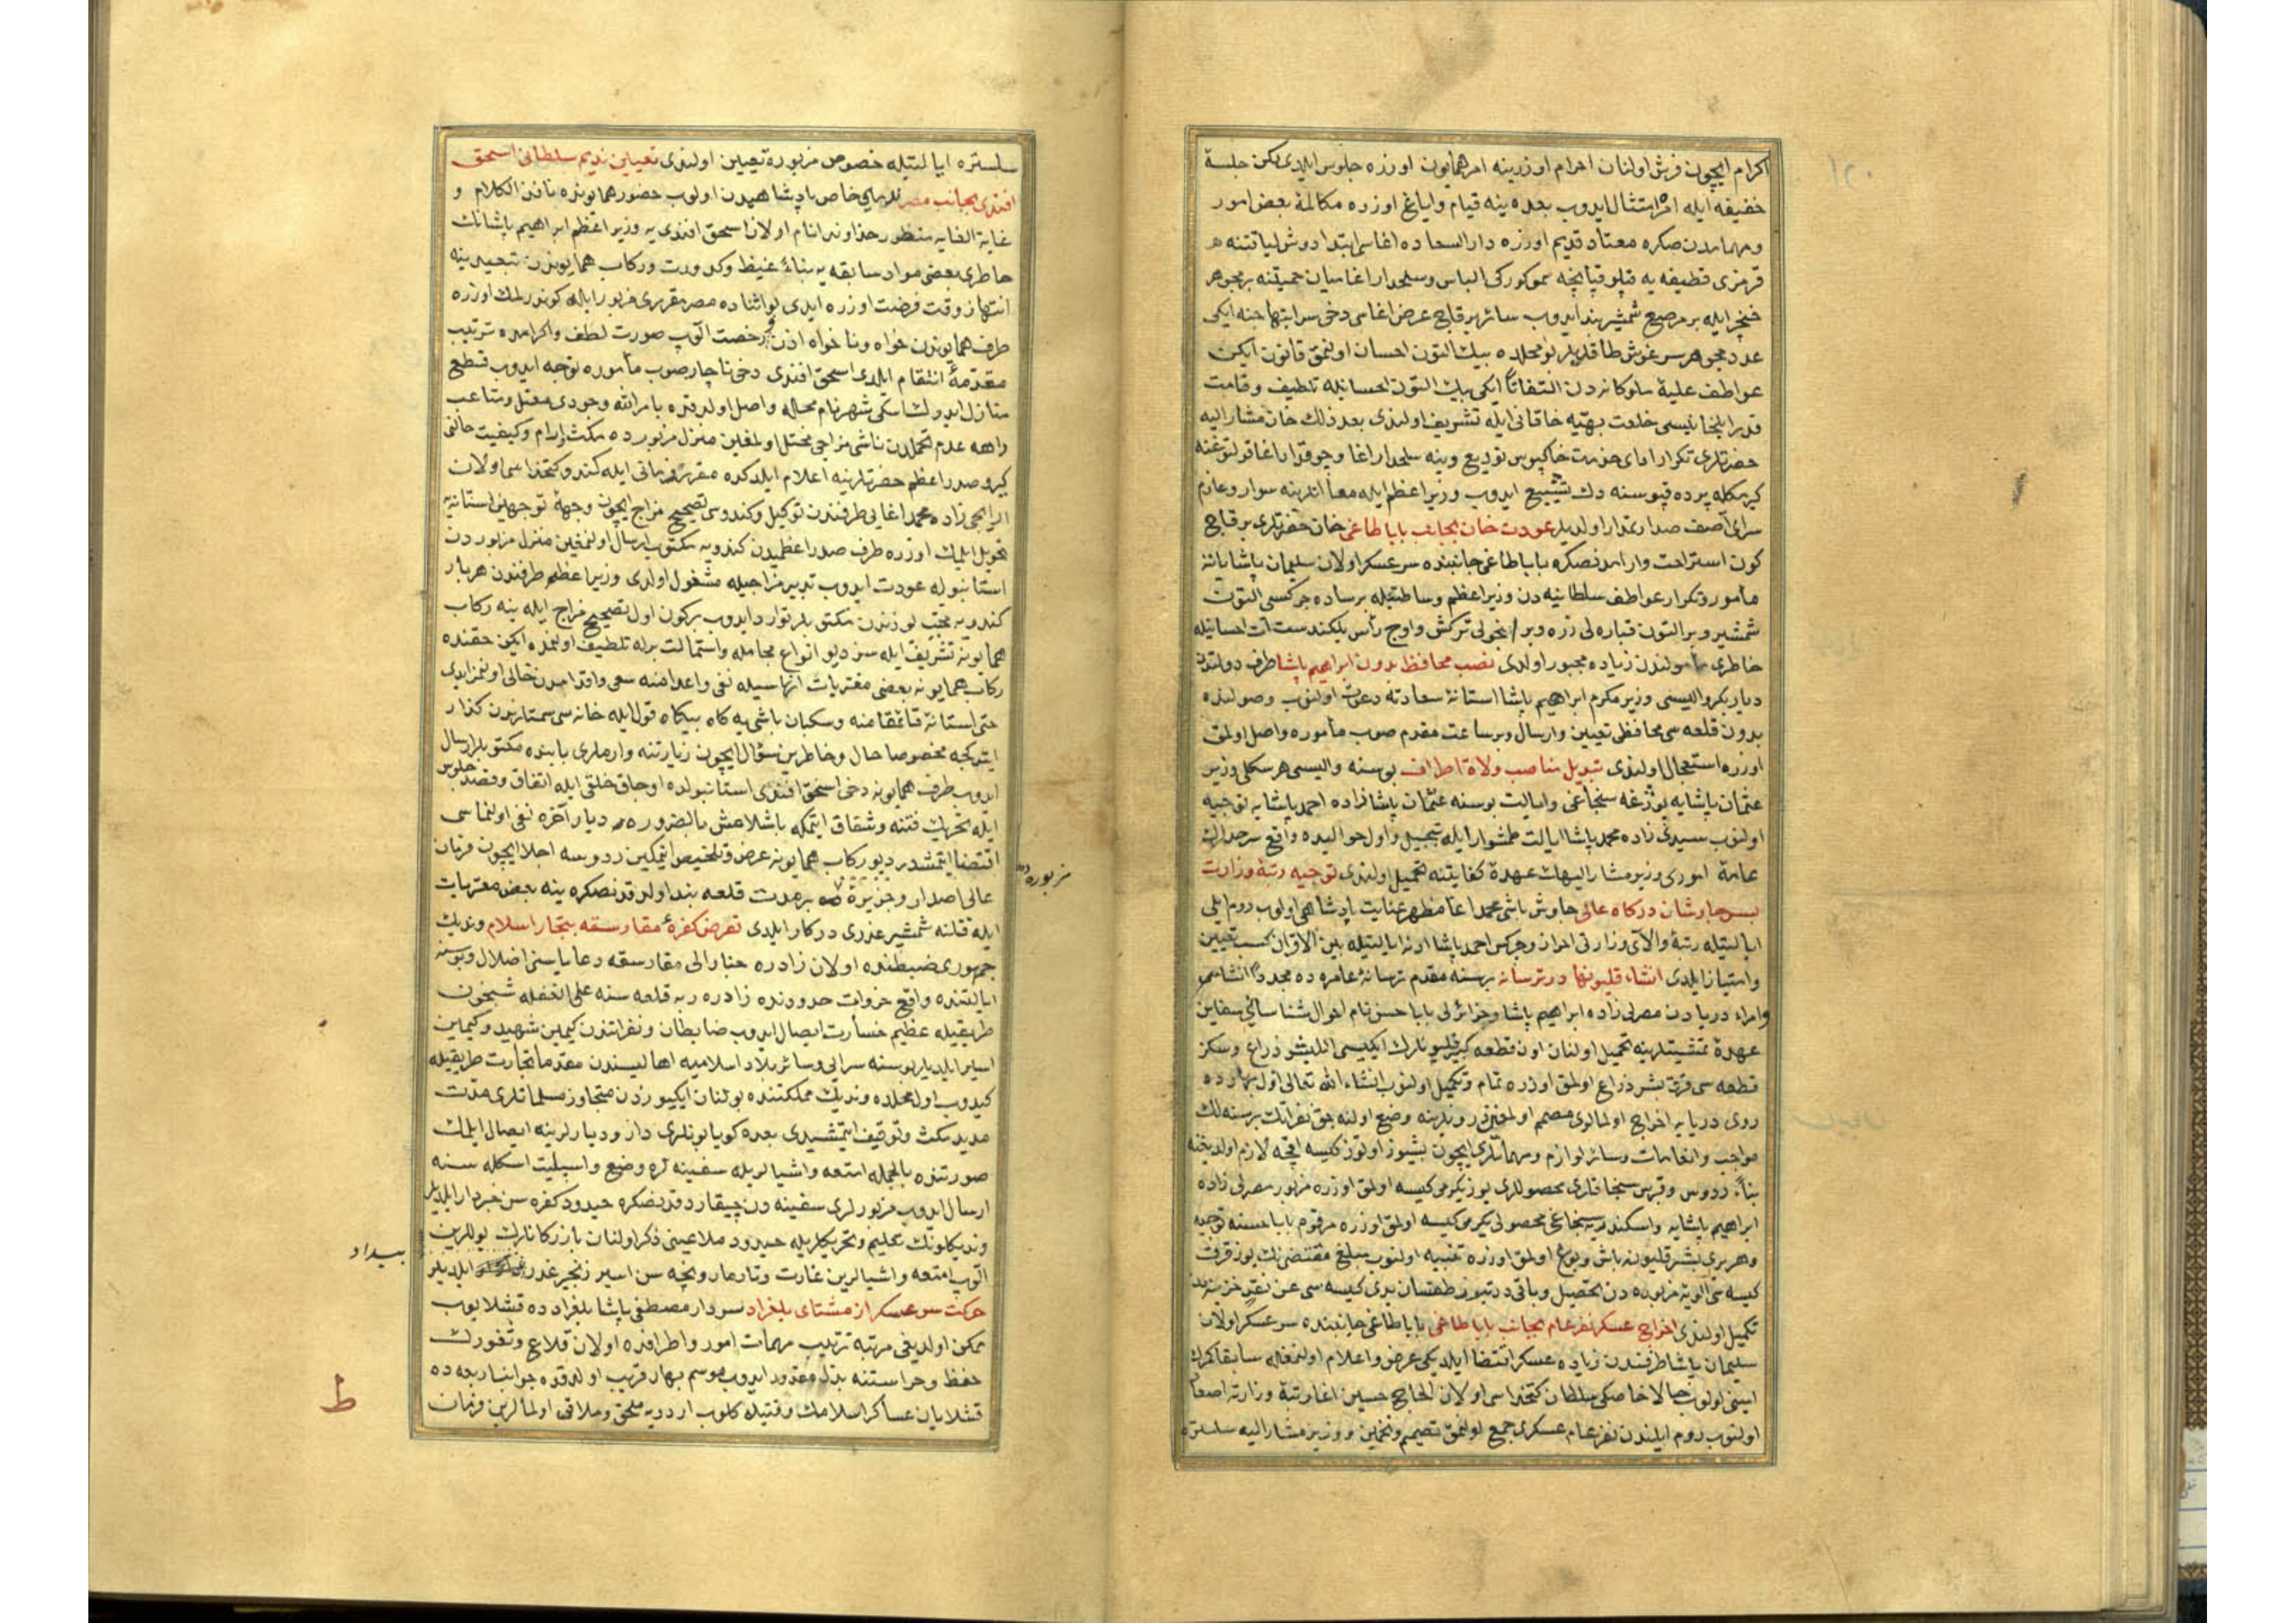 اکرام ایچون فرش اولنان احرام اوزرینه امر همایون اوزره جلوس ایلدی لکن جلسهٔ
خفیفه ایله امره امتثال ایدوب بعده ینه قیام و ایاغ اوزره مکالمهٔ بعض امور
و مهماتدن صکره معتاد قدیم اوزره دار السعاده اغاسی ابتدا دوش لیاقتنه
قرمزی قطیفه یه قپلو قپانیچه سمور کورکی الباس و سلحدار اغا میان حمیتنه بر مجوهر
خنجر ایله بر مرصع شمشیر بند ایدوب سائر بر قاچ عرض اغاسی دخی سرابتهاجنه ایکی
عدد مجوهر سرغوش طاقدیلر بو محلده بیك التون احسان اولنمق قانون ایکن
عواطف علیهٔ ملوکانه دن التفاتاً ایکی بیك التون احسانیله تلطیف و قامت
قدر ایلخانیسی خلعت بهیهٔ خاقانی ایله تشریف اولندی بعد ذلك خان مشار الیه
حضرتلری تکرار ادای خدمت خاکپوس تودیع و ینه سلحدار اغا و چوقدار اغا قولتوغنه
کیرمکله پرده قپوسنه دك تشییع ایدوب وزیر اعظم ایله معاً اتلرینه سوار و عازم
سرای آصف صدارتمدار اولدیلر عودت خان بجانب بابا طاغی خان حضرتلری بر قاچ
کون استراحت و آرامدنصکره بابا طاغی جانبنده سر عسکر اولان سلیمان پاشا یاننه
مأمور و تکرار عواطف سلطانیه دن وزیر اعظم وساطتیله بر ساده چرکسی التون
شمشیر و بر التون قباره لی زره و بر اینجولی ترکش و اوچ رأس یلکندست ات احسانیله
خاطری مأمولندن زیاده مجبور اولدی نصب محافظ بدون ابراهیم پاشا طرف دولتدن
دیاربکر والیسی وزیر مکرم ابراهیم پاشا استانهٔ سعادته دعوت اولنوب وصولنده
بدون قلعه سی محافظی تعیین و ارسال و بر ساعت مقدم صوب مأموره واصل اولمق
اوزره استعجال اولندی تبدیل مناصب ولاة اطراف بوسنه والیسی هرسکلی وزیر
عثمان پاشایه پوژغه سنجاغی و ایالت بوسنه عثمان پاشازاده احمد پاشایه توجیه
اولنوب سیدی زاده محمد پاشا ایالت طمشوار ایله تبجیل و اول حوالیده واقع سرحدلرك
عامهٔ اموری وزیر مشار الیهك عهدهٔ کفایتنه تحمیل اولندی توجیه رتبهٔ وزارت
بسر چاوشان درکاه عالی چاوش باشی محمد اغا مظهر عنایت پادشاهی اولوب روم ایلی
ایالتیله رتبهٔ والای وزارتی احراز و چرکس احمد پاشا ادنه ایالتیله بین الاقران کسب تعیین
و امتیاز ایلدی انشاء قلیونها در ترسانه بر سنه مقدم ترسانهٔ عامره ده مجدداً انشاسی
و امراء دریادن مصرلی زاده ابراهیم پاشا و جزائرلی بابا حسن نام احوال شناسانی سفاین
عهدهٔ تمشیتلرینه تحمیل اولنان اون قطعه کبیر قلیونلرك ایکیسی اللیشر ذراع و سکز
قطعه سی قرق بشر ذراع اولمق اوزره تمام و تکمیل اولنوب انشاء الله تعالی اول بهارده
روی دریایه اخراج اولمالری مصمم اولمغین درونلرینه وضع اولنه جق نفراتك بر سنه لك
مواجب و انعامات و سائر لوازم و مهماتلری ایچون بشیوز اوتوز کیسه اقچه لازم اولدیغنه
بناءً ردوس و قبرس سنجاقلری محصوللری یوز یکرمی کیسه اولمق اوزره مزبور مصرلی زاده
ابراهیم پاشایه و اسکندریه سنجاغی محصولی یکرمی کیسه اولمق اوزره مرقوم بابا حسنه توجیه
و هر بری بشر قلیونه باش و بوغ اولمق اوزره تنبیه اولنوب مبلغ مقتضینك یوز قرق
کیسه سی الویهٔ مزبوره دن تحصیل و باقی درتیوز طقسان بدی کیسه سی عن نقد خزینه دن
تکمیل اولندی اخراج عسکر نفر عام بجانب بابا طاغی بابا طاغی جانبنده سر عسکر اولان
سلیمان پاشا طرفندن زیاده عسکر اقتضا ایلدیکی عرض و اعلام اولنمغله سابقا کمرك
امینی اولوب حالا خاصکی سلطان کتخداسی اولان الحاج حسین اغا رتبهٔ وزارته اصعاد
اولنوب روم ایلیندن نفر عام عسکری جمع اولنمق تصمیم و تخمین و وزیر مشار الیه سلستره
سلستره ایالتیله خصوص مزبوره تعیین اولندی تعیین ندیم سلطانی اسحق
افندی بجانب مصر ندیمان خاص پادشاهیدن اولوب حضور همایونده نافذ الکلام و
غایة الغایه منظور خداوند انام اولان اسحق افندی یه وزیر اعظم ابراهیم پاشانك
خاطری بعض مواد سابقه یه بناءً غیظ و کدورت و رکاب همایوندن تبعیدینه
انتهاز وقت فرصت اوزره ایدی بو اثناده مصر مقرری مزبور ایله کوندرلمك اوزره
طرف همایوندن خواه و ناخواه اذن و رخصت الوب صورت لطف و اکرامده ترتیب
مقدمهٔ انتقام ایلدی اسحق افندی دخی ناچار صوب مأموره توجه ایدوب قطع
منازل ایدرك اسکی شهر نام محله واصل اولدقده بامر الله وجودی معتل و متاعب
راهه عدم تحملدن ناشی مزاجی مختل اولمغین منزل مزبورده مکث و آرام و کیفیت حالنی
کیرو صدر اعظم حضرتلرینه اعلام ایلدکده مقرر فرمانی ایله کندو کتخداسی اولان
الاجی زاده محمد اغایی طرفندن توکیل و کندوسی تصحیح مزاج ایچون وجههٔ توجهنی استانه یه
تحویل ایلمك اوزره طرف صدر اعظمیدن کندویه مکتوب ارسال اولنمغین منزل مزبوردن
استانبوله عودت ایدوب تدبیر مزاجیله مشغول اولدی وزیر اعظم طرفندن هر بار
کندویه محبت لوزندن مکتوبلر توارد ایدوب بر کون اول تصحیح مزاج ایله ینه رکاب
همایونه تشریف ایله سز دیو انواع مجامله و استمالت برله تلطیف اولنده ایکن حقنده
رکاب همایونه بعض مفتریات انهاسیله نفی و اعدامنه سعی و اقدامدن خالی اولمز ایدی
حتی استانهٔ قائمقامنه و سکبان باشی یه کاه بیکاه قول ایله خانه سی سمتلرندن کذار
ایتدکجه مخصوصا حال و خاطرین سؤال ایچون زیارتنه وارملری بابنده مکتوبلر ارسال
ایدوب طرف همایونه دخی اسحق افندی استانبولده اوجاق خلقی ایله اتفاق و قصد جلوس
ایله تحریك فتنه و شقاق ایتمکه باشلامش بالضروره دیار آخره نفی اولنماسی
اقتضا ایتمشدر دیو رکاب همایونه عرض و تلخیص ایتمکین ردوسه اجلا ایچون فرمان
عالی اصدار و جزیرهٔ بر مدت قلعه بند اولدقدنصکره ینه بعض مفتریات
مزبوره ده
ایله قتلنه شمشیر غدری درکار ایلدی تعرض کفرهٔ مقارسقه بتجار اسلام وندیك
جمهوری ضبطنده اولان زادره جنرالی مقارسقه رعایاسنی اضلال و بوسنه
ایالتنده واقع خروات حدودنده زادره ریه قلعه سنه علی الغفله شبخون
طریقیله عظیم خسارت ایصال ایدوب ضابطان و نفراتندن کیمین شهید و کیمین
اسیر ایلدیلر بوسنه سرایی و سائر بلاد اسلامیه اهالیسندن مقدما تجارت طریقیله
کیدوب اول محلده وندیك مملکتنده بولنان ایکیوزدن متجاوز مسلمانلری مدت
مدید مکث و توقیف ایتمشیدی بعده کویا بونلری دار و دیارلرینه ایصال ایلمك
صورتنده بالجمله امتعه و اشیالریله سفینه لره وضع و اسپلیت اسکله سنه
ارسال ایدوب مزبورلری سفینه دن چیقاردقدنصکره حیدود کفره سن خبردار ایلدیلر
وندیکلونك تعلیم و تحریکلریله حیدود ملاعینی ذکر اولنان بازرکانلرك یوللرین
الوب امتعه و اشیالرین غارت و تارمار و نیچه سن اسیر زنجیر غدر ایلدیلر
بیداد
حرکت سر عسکر از مشتای بلغراد سردار مصطفی پاشا بلغرادده قشلایوب
ممکن اولدیغی مرتبه ترتیب مهمات امور و اطرافنده اولان قلاع و ثغورك
حفظ و حراستنه بذل مقدور ایدوب موسم بهار قریب اولدقده جوانب اربعه ده
قشلایان عساکر اسلامك وقتیله کلوب اردویه ملحق و ملاقی اولمالرین فرمان
ط